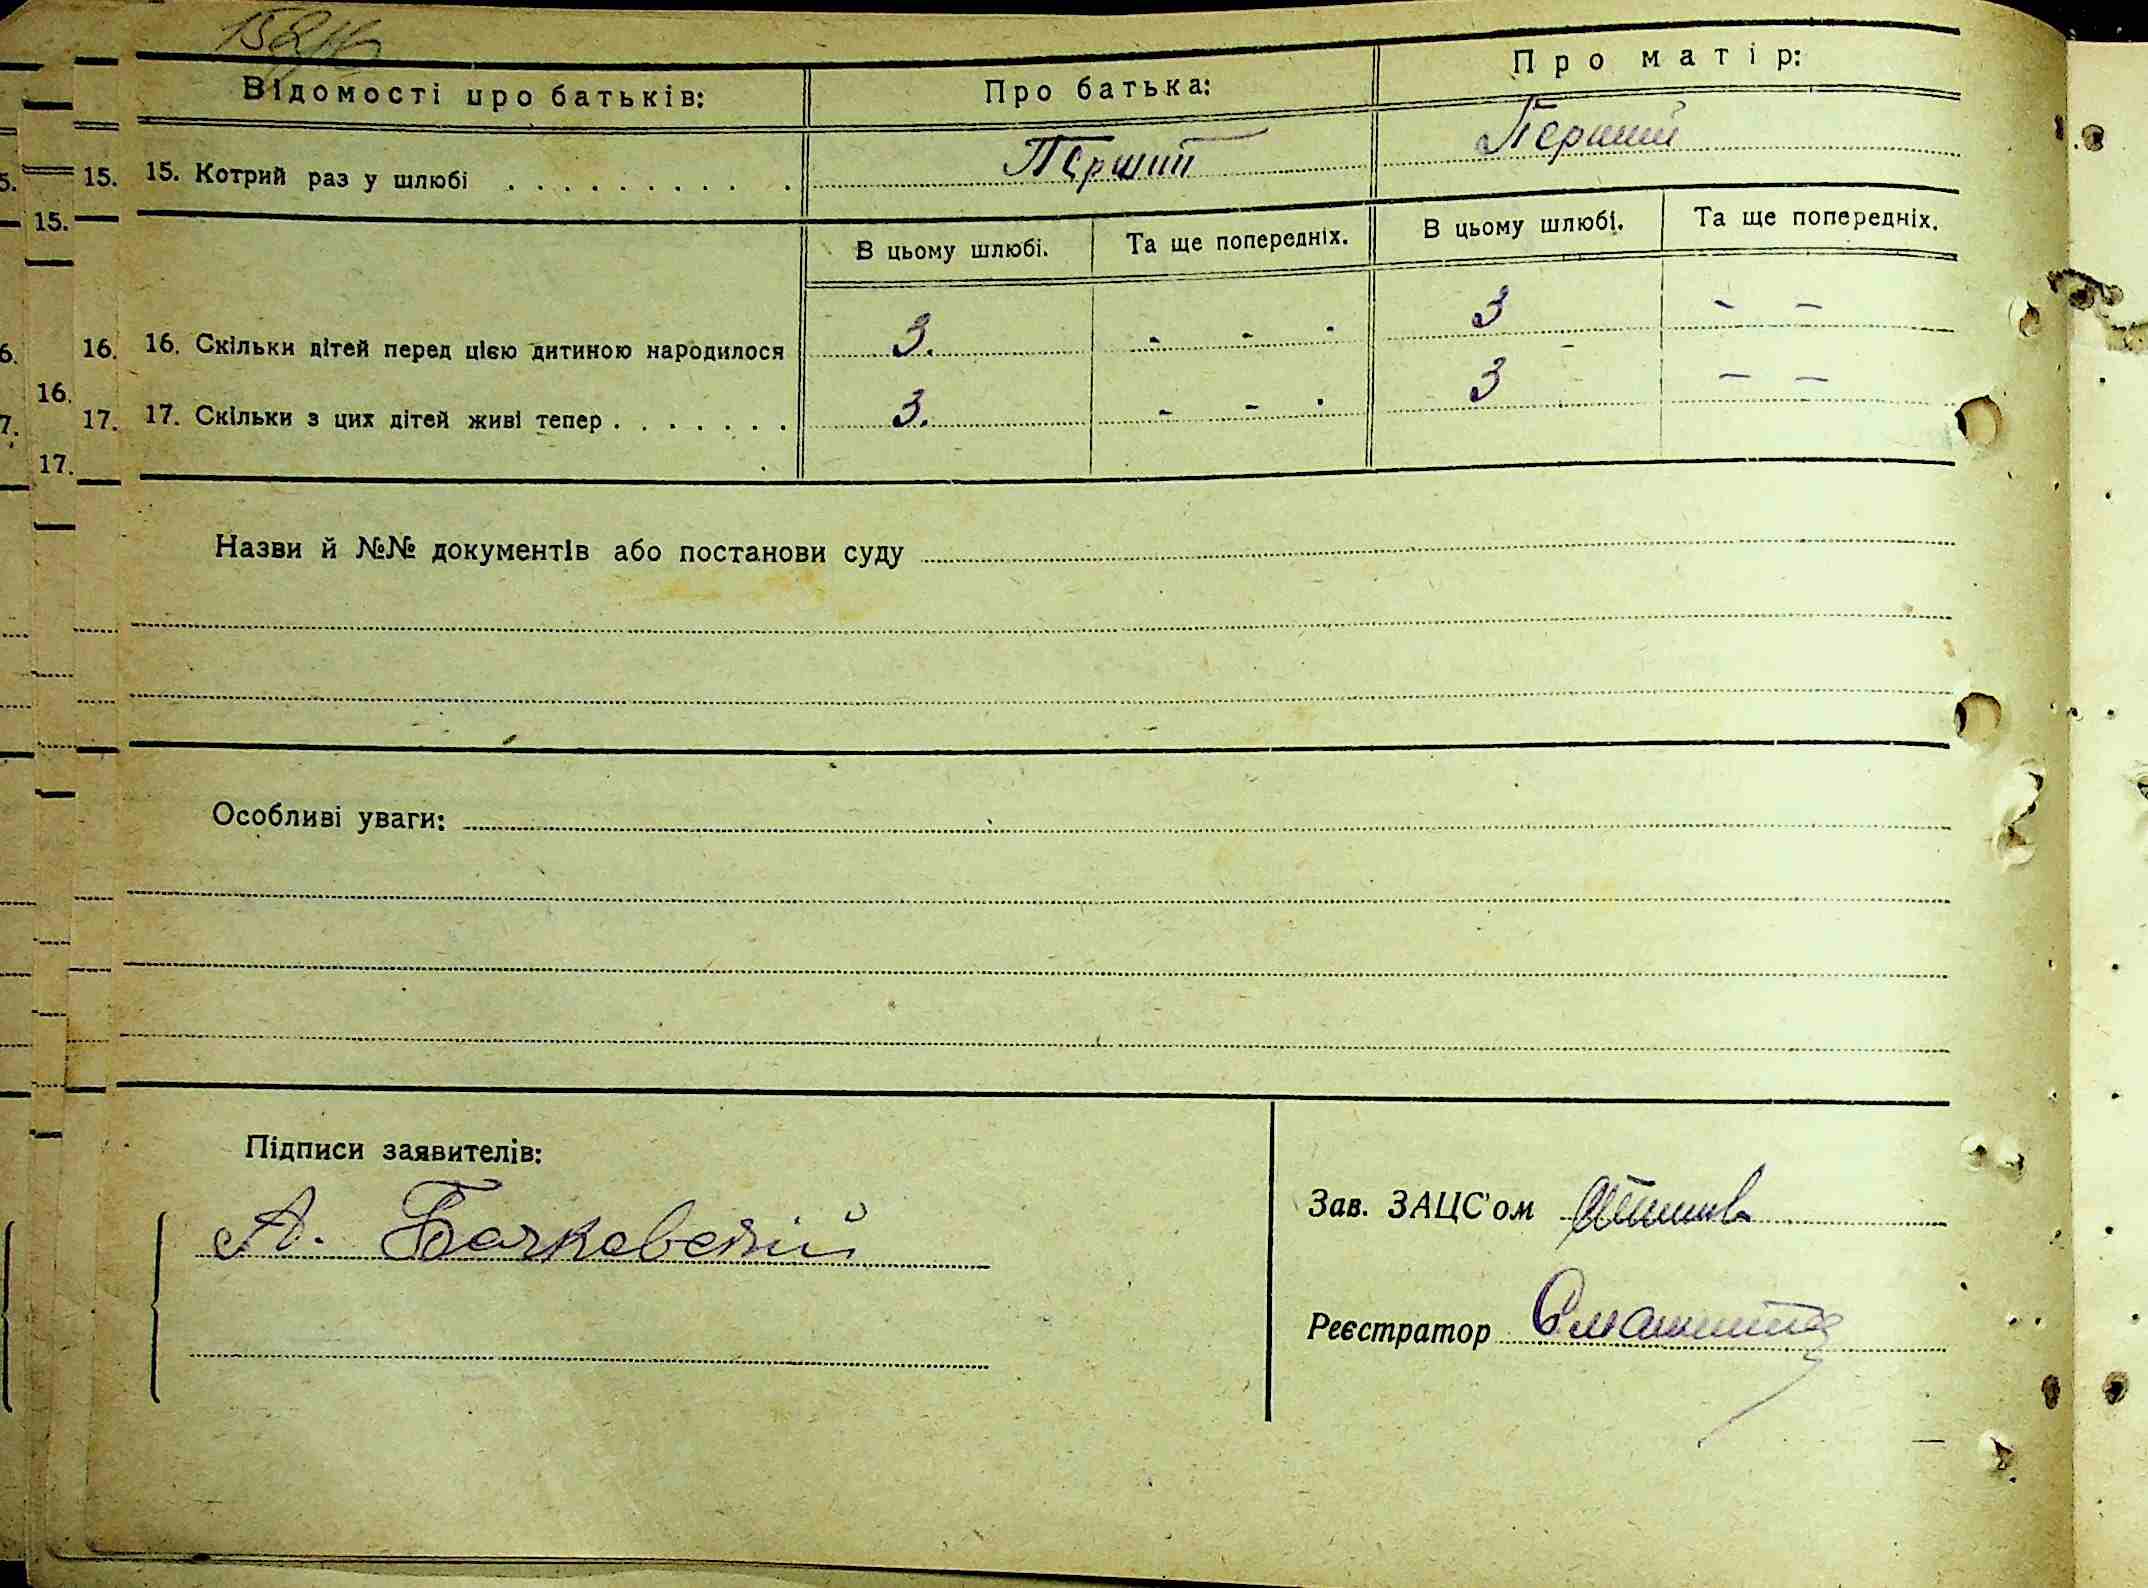 Відомості про батьків: Про батька: Про матір:
15. 15. Котрий раз у шлюбі . . . . . . . . . . Перший Перший
15.
В цьому шлюбі. Та ще попередніх. В цьому шлюбі. Та ще попередніх.
16. 16. Скільки дітей перед цією дитиною народилося 3. - - 3 - -
16.
17. 17. Скільки з цих дітей живі тепер . . . . . . . 3. - - 3 - -
17.
Назви й №№ документів або постанови суду
Особливі уваги:
Підписи заявителів:
А. Бачковській
Зав. ЗАЦС'ом
Реєстратор